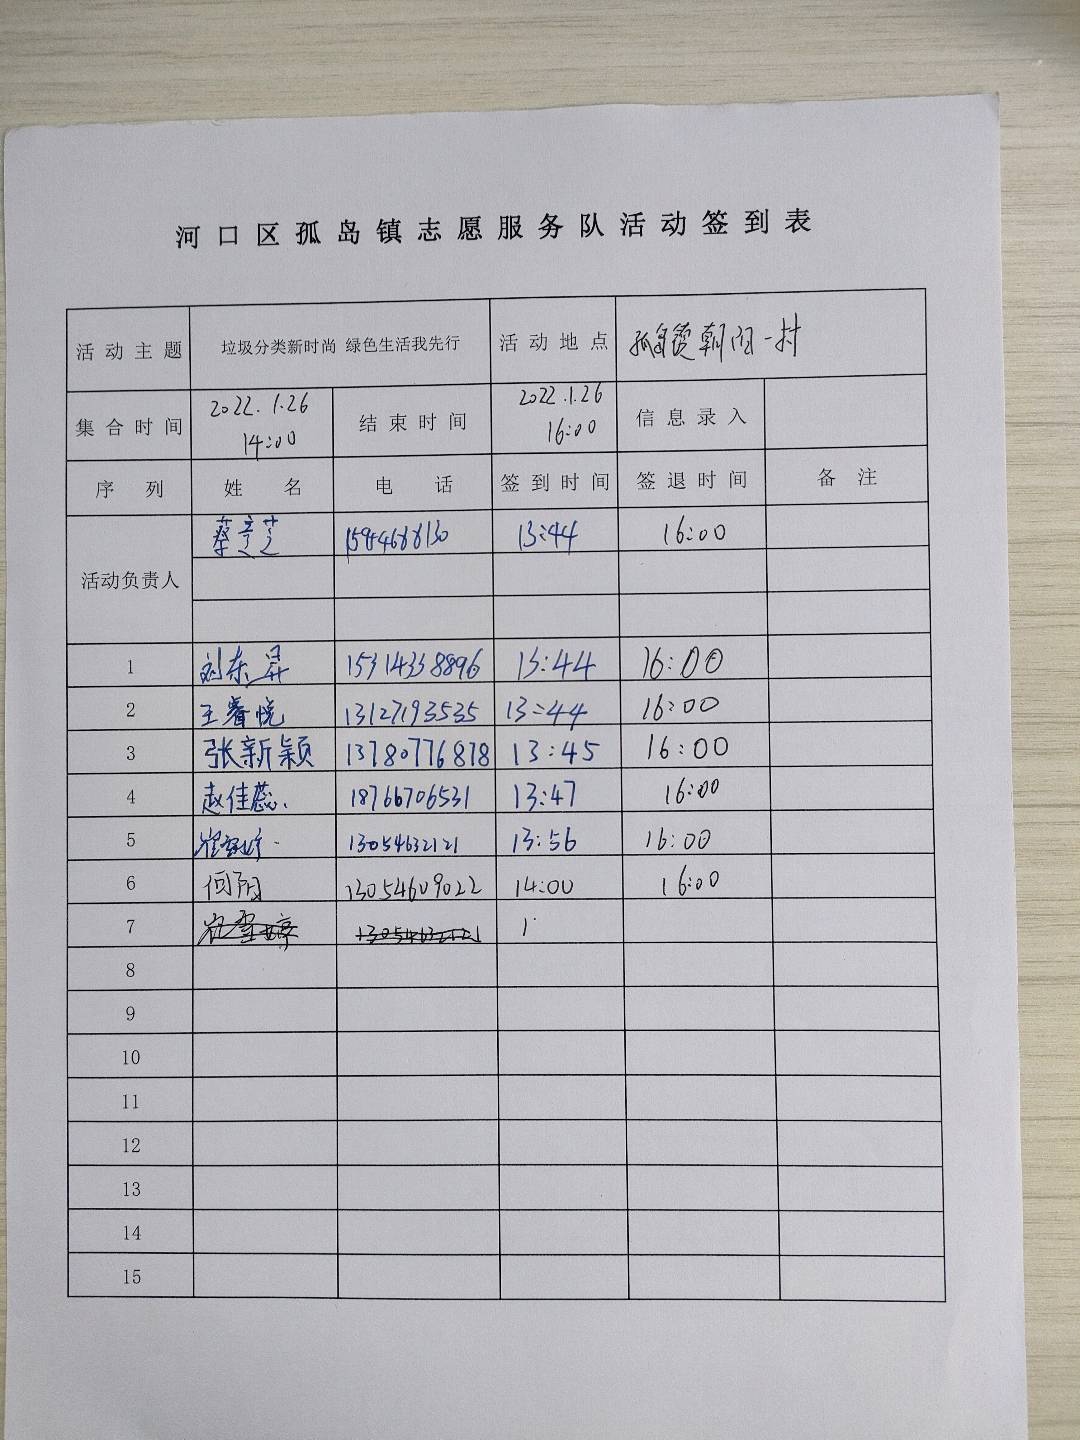 河口区孤岛镇志愿服务队活动签到表
活动主题 垃圾分类新时尚 绿色生活我先行 活动地点 孤岛镇朝阳一村
集合时间 2022.1.26 14:00 结束时间 2022.1.26 16:00 信息录入
序列 姓名 电话 签到时间 签退时间 备注
活动负责人 蔡 13:44 16:00
1 刘东昇 15314338896 13:44 16:00
2 王睿悦 13127193535 13:44 16:00
3 张新颖 13780776878 13:45 16:00
4 赵佳蕊 18766706531 13:47 16:00
5 崔 13054632121 13:56 16:00
6 何阳 13054609022 14:00 16:00
7 崔 13054632121 1
8
9
10
11
12
13
14
15